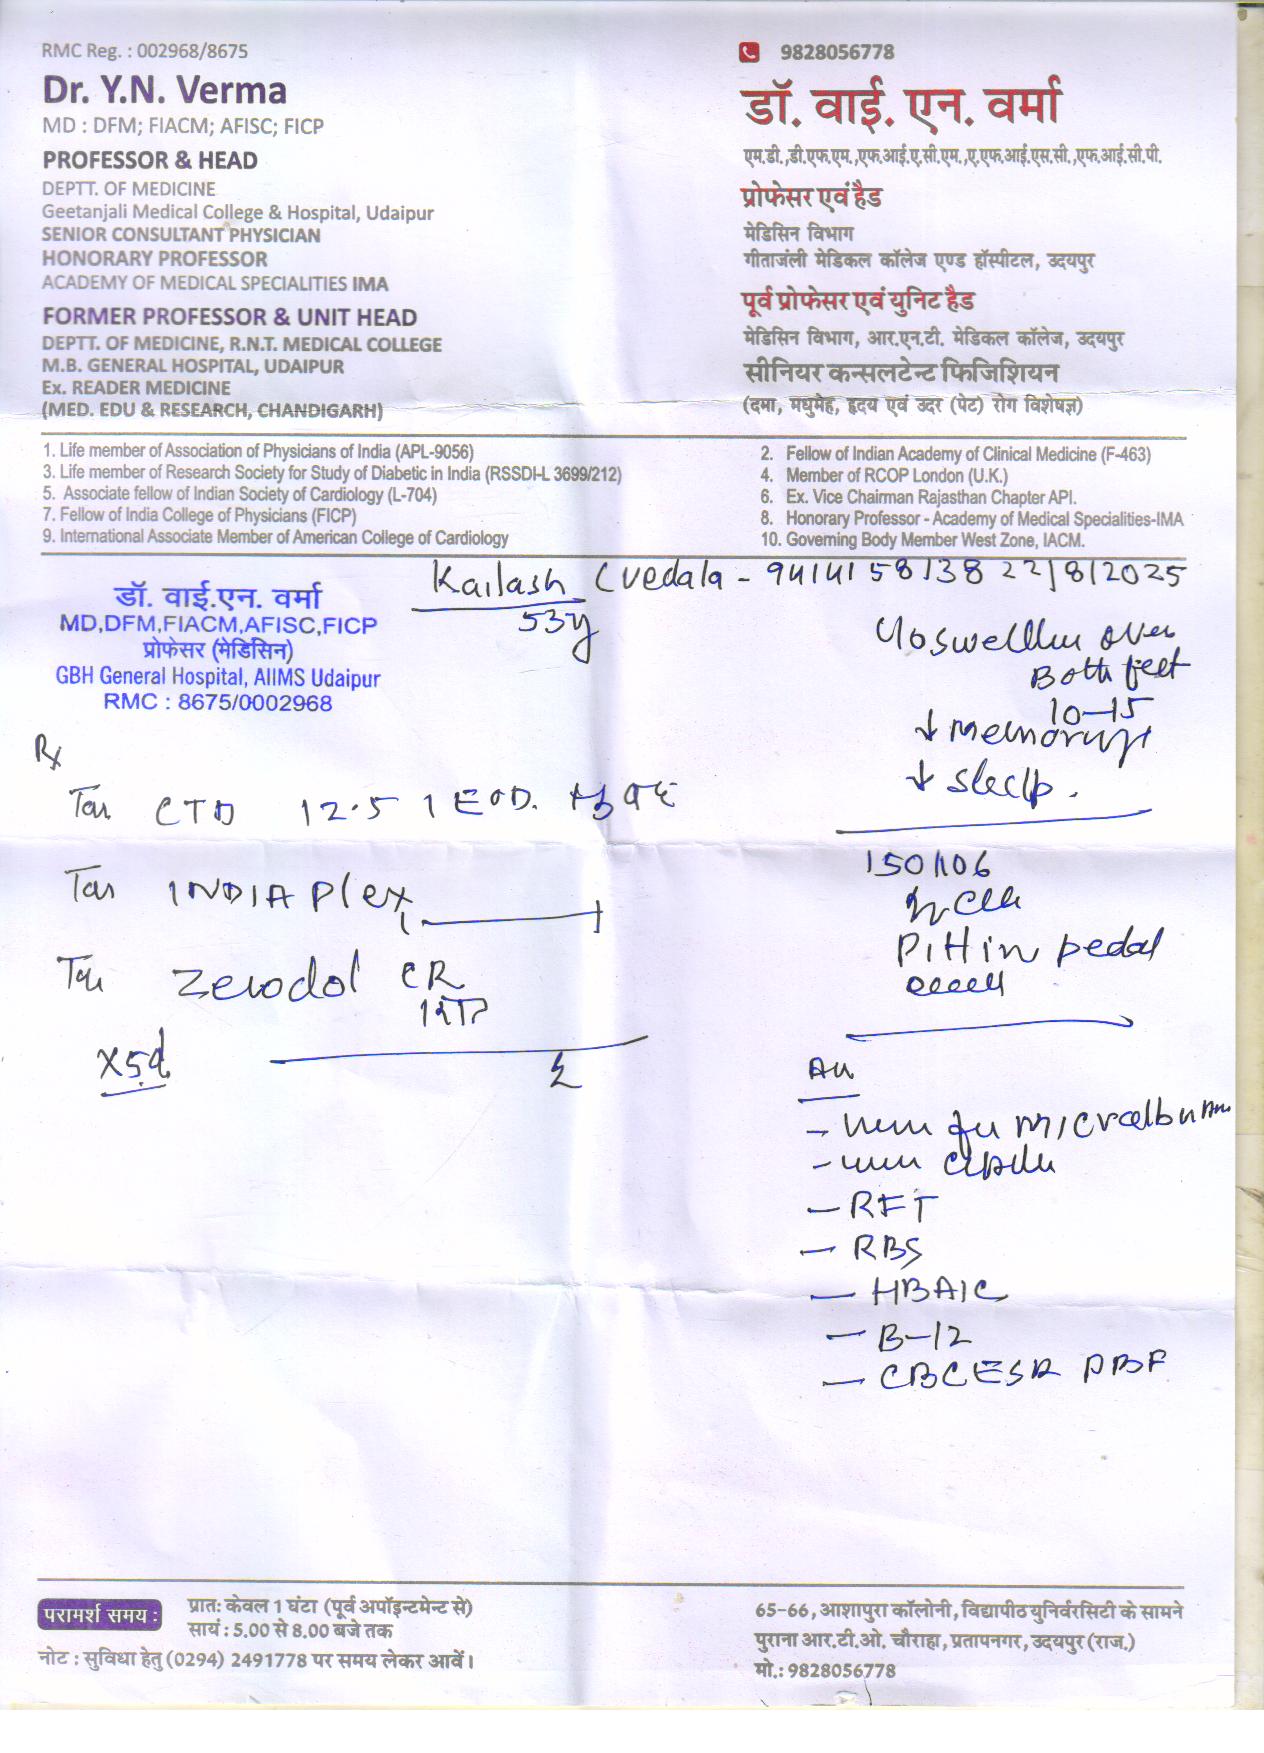 RMC Reg. : 002968/8675
Dr. Y.N. Verma
MD : DFM; FIACM; AFISC; FICP
PROFESSOR & HEAD
DEPTT. OF MEDICINE
Geetanjali Medical College & Hospital, Udaipur
SENIOR CONSULTANT PHYSICIAN
HONORARY PROFESSOR
ACADEMY OF MEDICAL SPECIALITIES IMA
FORMER PROFESSOR & UNIT HEAD
DEPTT. OF MEDICINE, R.N.T. MEDICAL COLLEGE
M.B. GENERAL HOSPITAL, UDAIPUR
Ex. READER MEDICINE
(MED. EDU & RESEARCH, CHANDIGARH)
9828056778
डॉ. वाई. एन. वर्मा
एम.डी.,डी.एफ.एम.,एफ.आई.ए.सी.एम.,ए.एफ.आई.एस.सी.,एफ.आई.सी.पी.
प्रोफेसर एवं हैड
मेडिसिन विभाग
गीताजंली मेडिकल कॉलेज एण्ड हॉस्पीटल, उदयपुर
पूर्व प्रोफेसर एवं युनिट हैड
मेडिसिन विभाग, आर.एन.टी. मेडिकल कॉलेज, उदयपुर
सीनियर कन्सलटेन्ट फिजिशियन
(दमा, मधुमेह, हृदय एवं उदर (पेट) रोग विशेषज्ञ)
1. Life member of Association of Physicians of India (APL-9056)
2. Fellow of Indian Academy of Clinical Medicine (F-463)
3. Life member of Research Society for Study of Diabetic in India (RSSDI-L 3699/212)
4. Member of RCOP London (U.K.)
5. Associate fellow of Indian Society of Cardiology (L-704)
6. Ex. Vice Chairman Rajasthan Chapter API.
7. Fellow of India College of Physicians (FICP)
8. Honorary Professor - Academy of Medical Specialities-IMA
9. International Associate Member of American College of Cardiology
10. Governing Body Member West Zone, IACM.
Kailash Cvedala - 9414158138 22/8/2025
53y
डॉ. वाई.एन. वर्मा
MD,DFM,FIACM,AFISC,FICP
प्रोफेसर (मेडिसिन)
GBH General Hospital, AIIMS Udaipur
RMC : 8675/0002968
over
Both feet
10-15
↓ memory
↓ sleep.
Rx
CTD 12.5 1 EOD.
INDIA Plex
Zerodol CR
x5d
150/106
Pittin pedal
- for microalbumin
-
- RFT
- RBS
- HBA1C
- B-12
- CBC ESR PBF
परामर्श समय :
प्रातः केवल 1 घंटा (पूर्व अपॉइन्टमेन्ट से)
सायं : 5.00 से 8.00 बजे तक
नोट : सुविधा हेतु (0294) 2491778 पर समय लेकर आवें।
65-66, आशापुरा कॉलोनी, विद्यापीठ युनिर्वरसिटी के सामने
पुराना आर.टी.ओ. चौराहा, प्रतापनगर, उदयपुर (राज.)
मो.: 9828056778